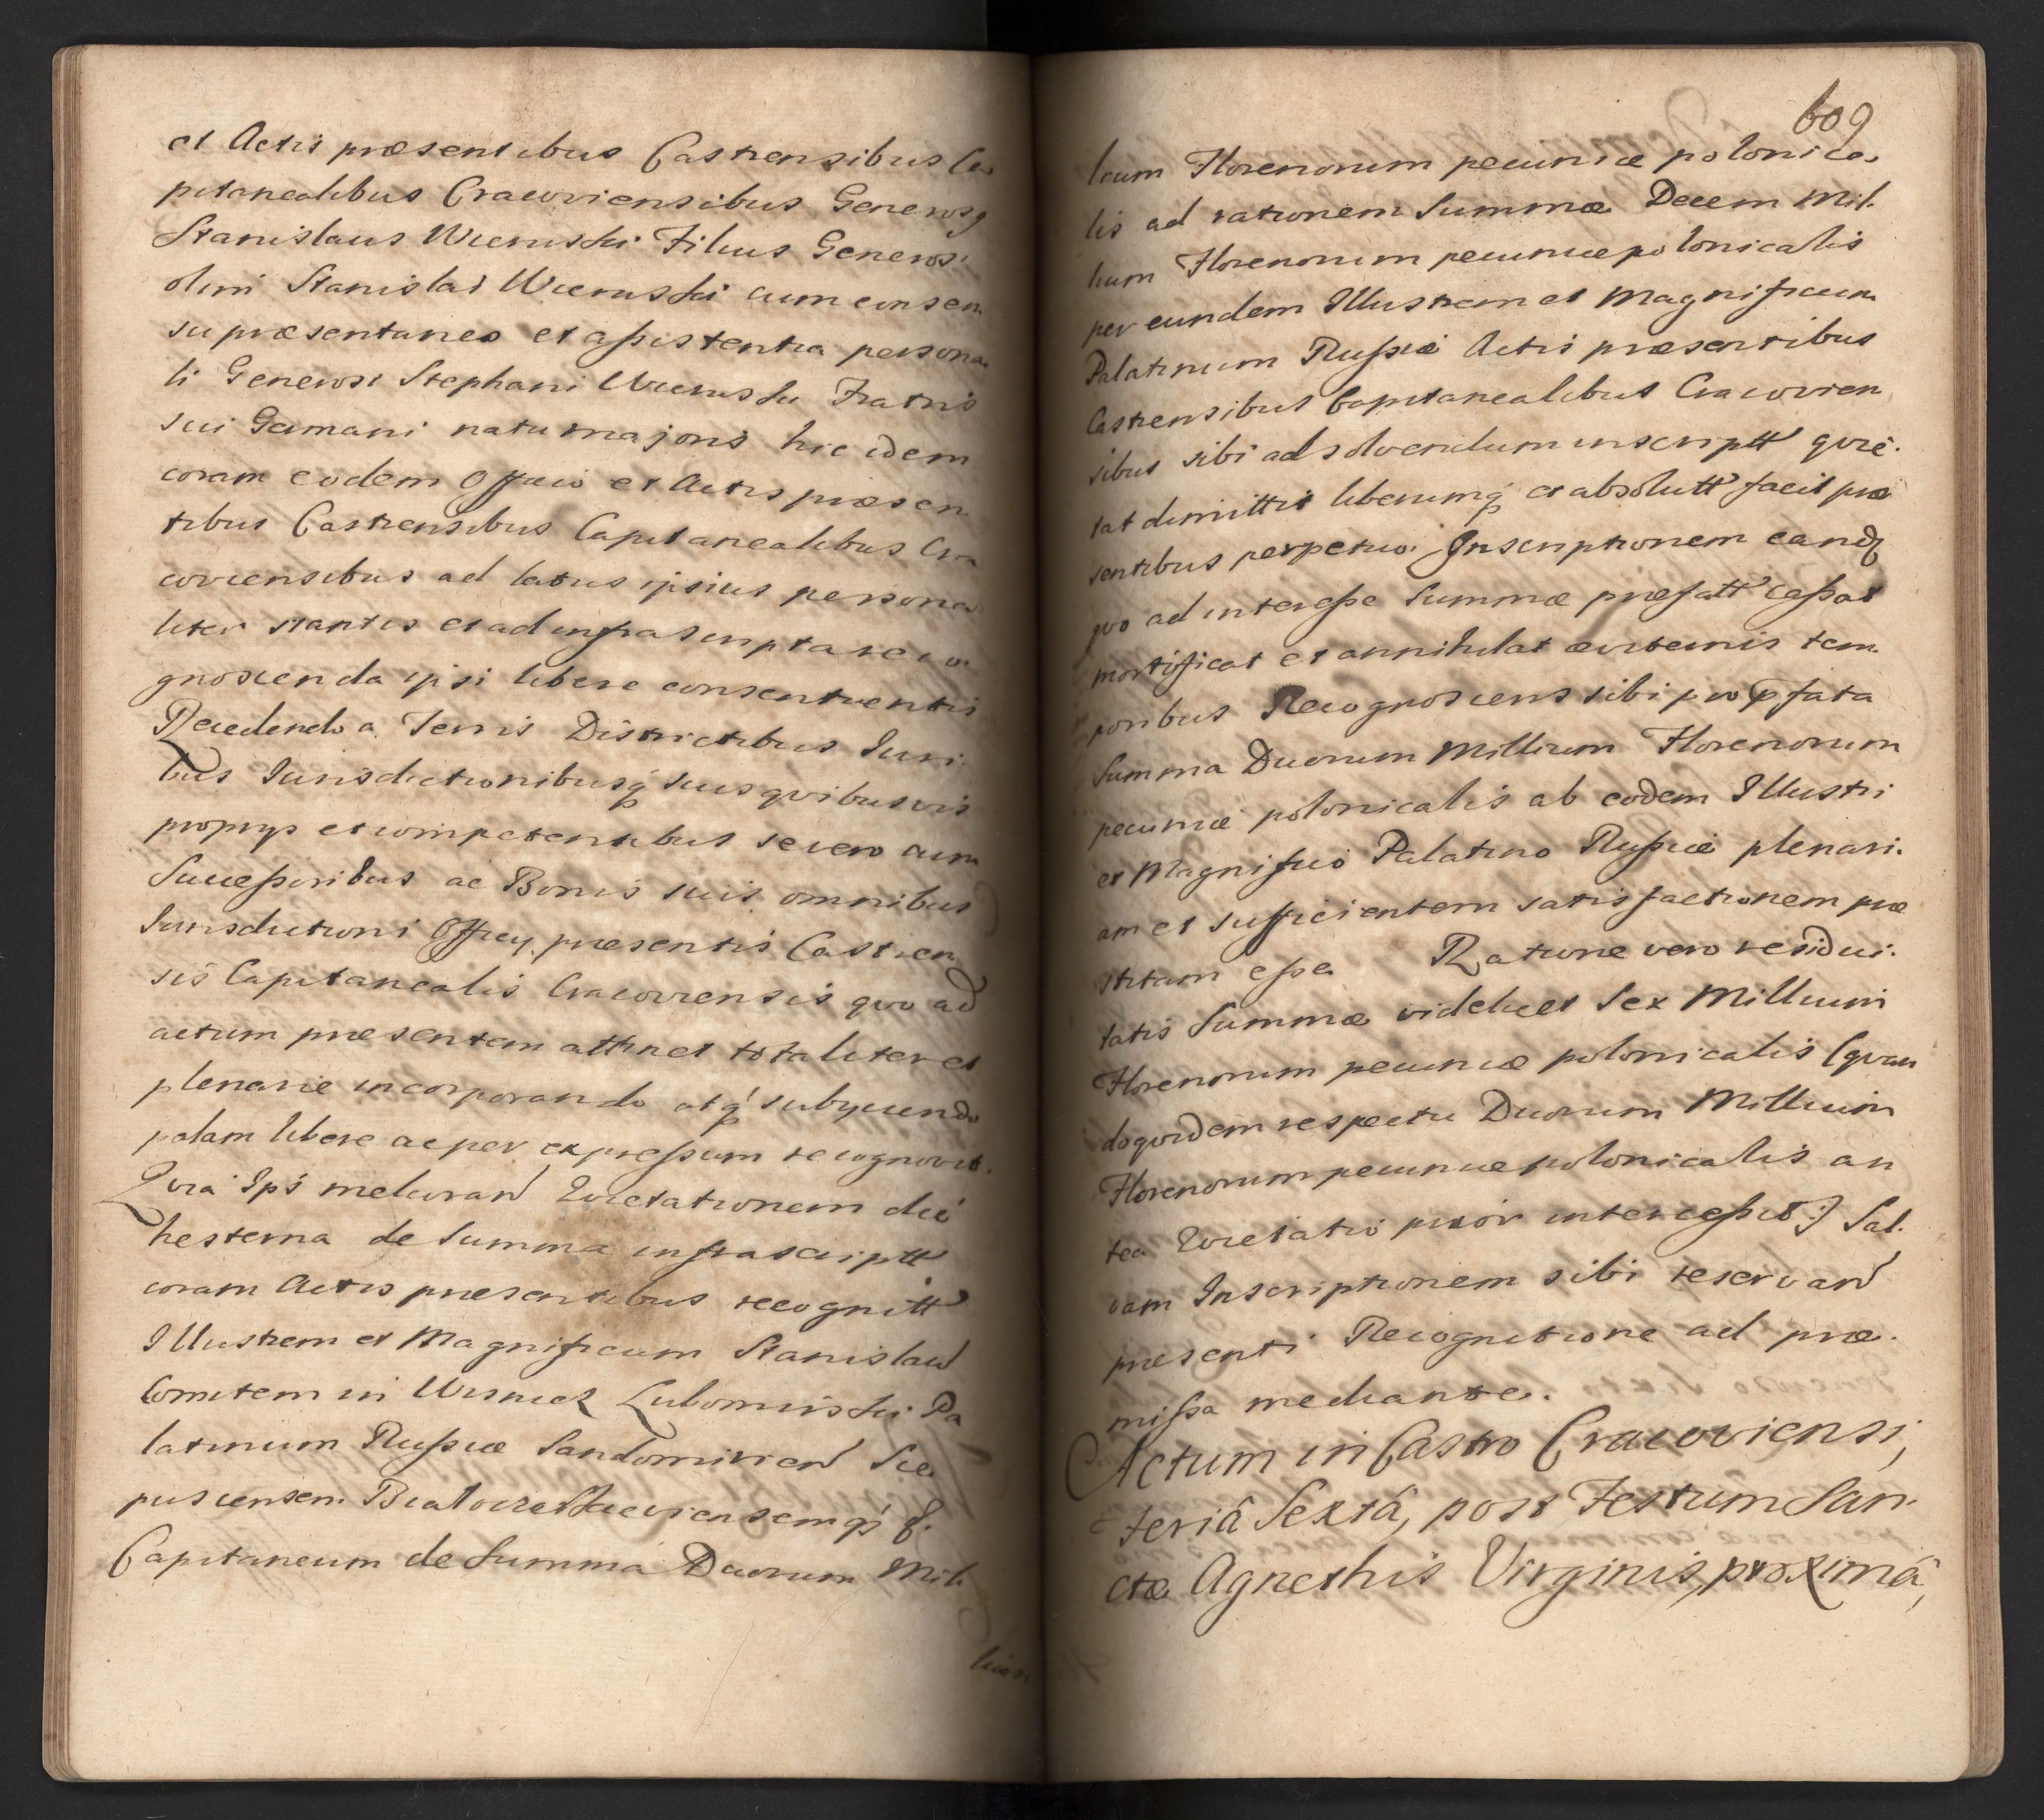 et Actis præsentibus Castrensibus Ca
pitanealibus Cracoviensibus Generosq
Stanislaus Wieruski Filius Generosi
olim Stanislai Wieruski cum consen
su præsentaneo et aßistentia persona
li Generosi Stephani Wieruski Fratris
sui Germani natu majoris hic idem
coram eodem Officio et Actis præsen
tibus Castrensibus Capitanealibus Cra
coviensibus ad latus ipsius persona
liter stantis et ad infrascripta reco
gnoscenda ipsi libere consentientis
Recedendo a Terris Districtibus Juri
bus Jurisdictionibusq suis qvibusvis
proprys et competentibus se vero cum
Succeßoribus ac Bonis suis omnibus
Jurisdictioni Officy præsentis Castren
sis Capitanealis Cracoviensis qvo ad
actum præsentem attinet totaliter et
plenarie incorporando atq subyciendo
palam libere ac per expreßum recognovit.
Qvia Ips meliorand Qvietationem die
hesterna de Summa infrascriptt
coram Actis præsentibus recognitt
Illustrem et Magnificum Stanislaum
Comitem in Wisnicz Lubomirski Pa
latinum Rußiæ Sandomirien Sce
pusiensem Bialocerkieviensemq &.
Capitaneum de Summa Duorum Mil.
lium
609
lium Florenorum pecuniæ polonica
lis ad rationem Summæ Decem Mil.
lium Florenorum pecuniæ polonicalis
per eundem Illustrem et Magnificum
Palatinum Rußiæ Actis præsentibus
Castrensibus Capitanealibus Cracovien
sibus sibi ad solvendum inscriptt qvie.
tat dimittit liberumq et absolutt facit præ
sentibus perpetuo. Inscriptionem eandq
qvo ad intereße Summæ præfatt caßat
mortificat et annihilat æviternis tem.
poribus Recognoscens sibi pro pfata
Summa Duorum Millium Florenorum
pecuniæ polonicalis ab eodem Illustri
et Magnifico Palatino Rußiæ plenari.
am et sufficientem satisfactionem præ
stitam eße. Ratione vero residui.
tatis Summæ videlicet Sex Millium
Florenorum pecuniæ polonicalis (qvan
doqvidem respectu Duorum Millium
Florenorum pecuniæ polonicalis an
tea Qvietatio prior interceßit:) Sal.
vam Inscriptionem sibi reservand
præsenti Recognitione ad præ.
mißa mediante.
Actum in Castro Cracoviensi,
Feriâ Sextâ, post Festum San
ctæ Agnethis Virginis, proximâ,